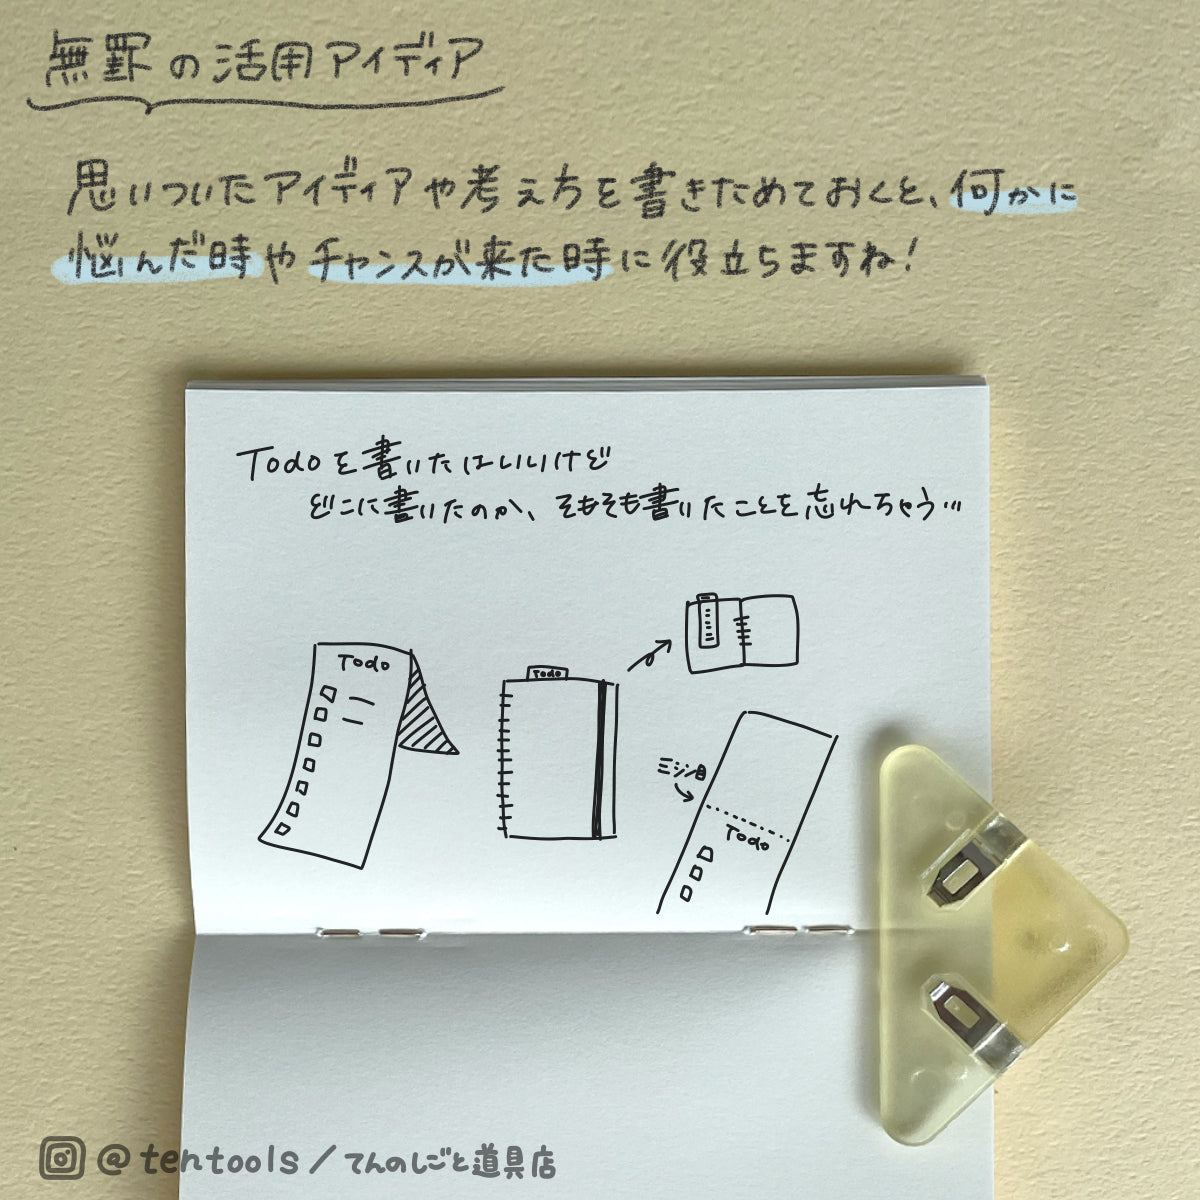 無罫の活用アイディア
思いついたアイディアや考え方を書きためておくと、何かに
悩んだ時やチャンスが来た時に役立ちますね！
Todoを書いたはいいけど
どこに書いたのか、そもそも書いたことを忘れちゃう…
Todo
Todo
ミシン目
Todo
@tentools/てんのしごと道具店